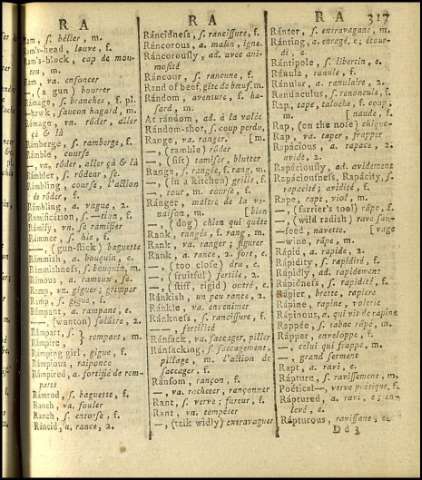 R A
R A
R A 317
am, s. bélier, m.
am's-head, louve, f.
am's-block, cap de mouton, m.
am, va. enfoncer
—, (a gun) bourrer
s. branches, f. pl.
faucon hagard, m.
vn. rôder, aller
çà & là
Rámberge, s. ramberge, f.
Rámble, course
—, va. rôder, aller çà & là
Rámbler, s. rôdeur, se.
Rámbling, course, l'action
de rôder, f.
Rámbling, a. vague, 2.
Ramification, s. —tion, f.
Rámify, vn. se ramifier
Rámmer, s. hie, f.
—, (gun-stick) baguette
Rámmish, a. bouquin, e.
Rámmishness, s. bouquin, m.
Rámous, a. rameux, se.
Ramp, vn. giguer; grimper
Ramp, s. gigue, f.
Rámpant, a. rampant, e.
—, (wanton) folâtre, 2.
Rámpart, s. } rempart, m.
Rámpire,
Rámping girl, gigue, f.
Rámpions, raiponce
Rámpired, a. fortifié de remparts
Ramrod, s. baguette, f.
Ranch, va. fouler
Ranch, s. entorse, f.
Ráncid, a. rance, 2.
Ráncidness, s. rancissure, f.
Ráncorous, a. malin, igne.
Ráncorously, ad. avec animosité
Ráncour, s. rancune, f.
Rand of beef, gîte de bœuf, m.
Rándom, aventure, f. hasard, m.
At rándom, ad. à la volée
Rándom-shot, s. coup perdu,
Range, va. ranger, [m.
—, (ramble) rôder
—, (sift) tamiser, blutter
Range, s. rangée, f. rang, m.
—, (in a kitchen) grille, f.
—, tour, m. course, f.
Ránger, maître de la venaison, m. [bien
—, (dog) chien qui quête
Rank, rangée, f. rang, m.
Rank, va. ranger; figurer
Rank, a. rance, 2. fort, e.
—, (too close) dru, e.
—, (fruitful) fertile, 2.
—, (stiff, rigid) outré, e.
Ránkish, un peu rance, 2.
Ránkle, va. envenimer
Ránkness, s. rancissure, f.
—— fertilité
Ránsack, va. saccager, piller
Ránsacking, s. saccagement,
pillage, m. l'action de
saccager, f.
Ránsom, rançon, f.
—, va. racheter, rançonner
Rant, s. verve; fureur, f.
Rant, va. tempêter
—, (talk widly) extravaguer
Ránter, s. extravagant, m.
Ránting, a. enragé, e; étourdi, e.
Rántipole, s. libertin, e.
Ránula, ranule, f.
Ránular, a. ranulaire, 2.
Ranúnculus, s. renoncule, f.
Rap, tape, taloche, f. coup,
m. [naude, f.
Rap, (on the nose) chique-
Rap, va. taper, frapper
Rapácious, a. rapace, 2.
avide, 2.
Rapáciously, ad. avidement
Rapáciousness, Rapácity, s.
rapacité; avidité, f.
Rape, rape, viol, m.
—, (farrier's tool) râpe, f.
—, (wild radish) rave sau-
—seed, navette, [vage
—wine, râpe, m.
Rápid, a. rapide, 2.
Rapídity, s. rapidité, f.
Rápidly, ad. rapidement
Rápidness, s. rapidité, f.
Rápier, brette, rapière
Rápine, rapine, volerie
Rápinous, a. qui vit de rapine
Rappée, s. tabac râpé, m.
Rápper, enveloppe, f.
—, celui qui frappe, m.
—, grand serment
Rapt, a. ravi, e.
Rápture, s. ravissement, m.
Poétical—, verve poétique, f.
Ráptured, a. ravi, e; enlevé, e.
Rápturous, ravissant, e.
D d 3